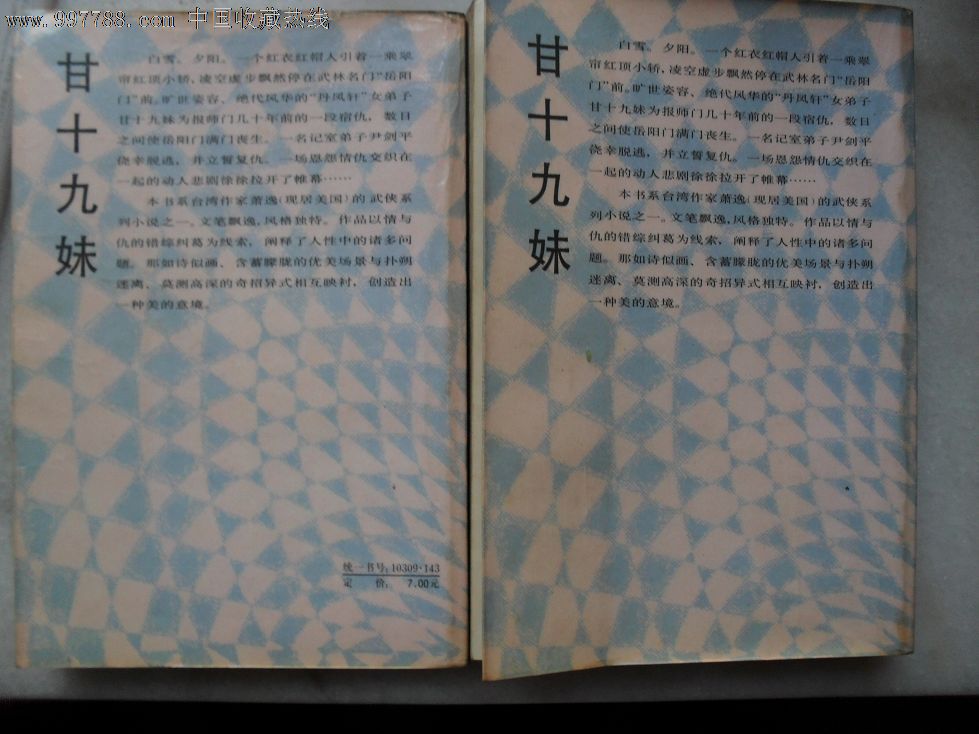 www.997788.com 中国收藏热线
甘十九妹
白雪。夕阳。一个红衣红帽人引着一乘翠
帘红顶小轿，凌空虚步飘然停在武林名门“岳阳
门”前。旷世姿容、绝代风华的“丹凤轩”女弟子
甘十九妹为报师门几十年前的一段宿仇，数日
之间使岳阳门满门丧生。一名记室弟子尹剑平
侥幸脱逃，并立誓复仇。一场恩怨情仇交织在
一起的动人悲剧徐徐拉开了帷幕……
本书系台湾作家萧逸（现居美国）的武侠系
列小说之一。文笔飘逸，风格独特。作品以情与
仇的错综纠葛为线索，阐释了人性中的诸多问
题。那如诗似画、含蓄朦胧的优美场景与扑朔
迷离、莫测高深的奇招异式相互映衬，创造出
一种美的意境。
统一书号：10309·143
定 价： 7.00元
甘十九妹
白雪。夕阳。一个红衣红帽人引着一乘翠
帘红顶小轿，凌空虚步飘然停在武林名门“岳阳
门”前。旷世姿容、绝代风华的“丹凤轩”女弟子
甘十九妹为报师门几十年前的一段宿仇，数日
之间使岳阳门满门丧生。一名记室弟子尹剑平
侥幸脱逃，并立誓复仇。一场恩怨情仇交织在
一起的动人悲剧徐徐拉开了帷幕……
本书系台湾作家萧逸（现居美国）的武侠系
列小说之一。文笔飘逸，风格独特。作品以情与
仇的错综纠葛为线索，阐释了人性中的诸多问
题。那如诗似画、含蓄朦胧的优美场景与扑朔
迷离、莫测高深的奇招异式相互映衬，创造出
一种美的意境。